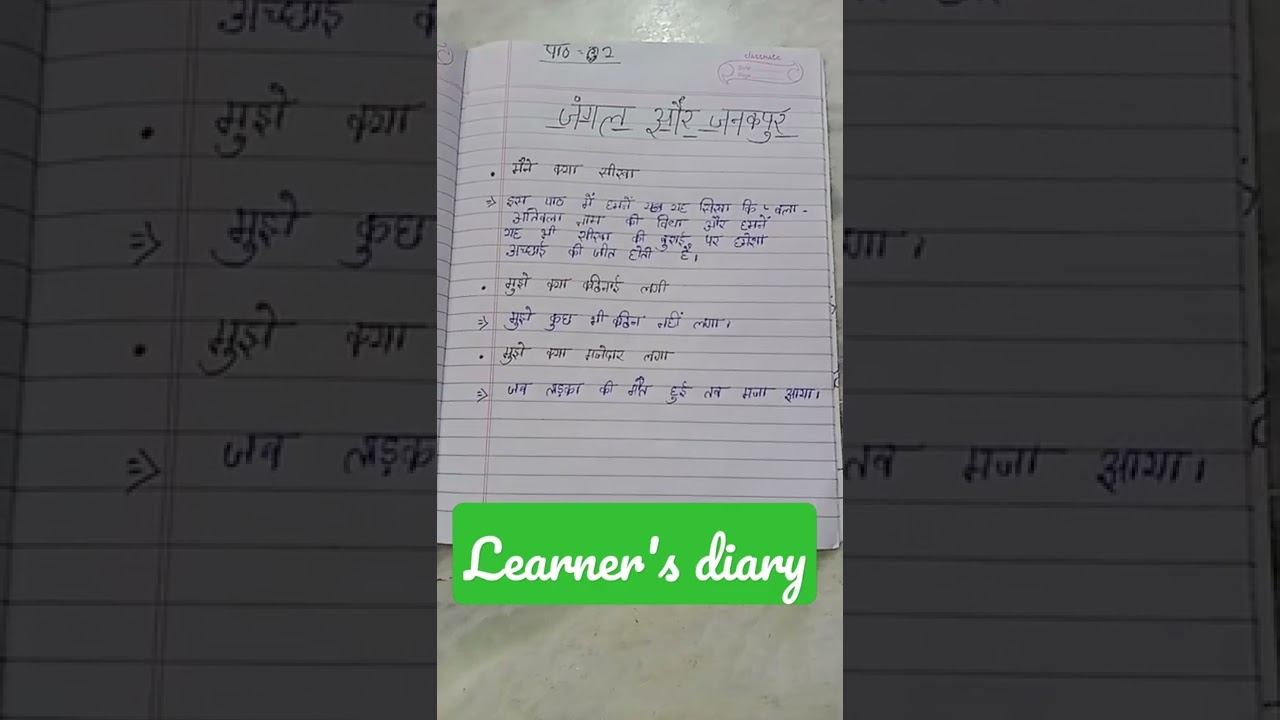 पाठ - 2
classmate
जंगल और जनकपुर
• मैंने क्या सीखा
⇒ इस पाठ में हमनें यह सिखा कि - बला -
अतिबला नाम की विद्या और हमनें
यह भी सीखा की बुराई पर हमेशा
अच्छाई की जीत होती है।
• मुझे क्या कठिनाई लगी
⇒ मुझे कुछ भी कठिन नहीं लगा।
• मुझे क्या मजेदार लगा
⇒ जब ताड़का की मौत हुई तब मजा आया।
Learner's diary